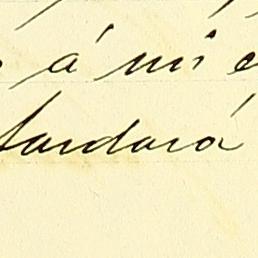 á mi
tardará